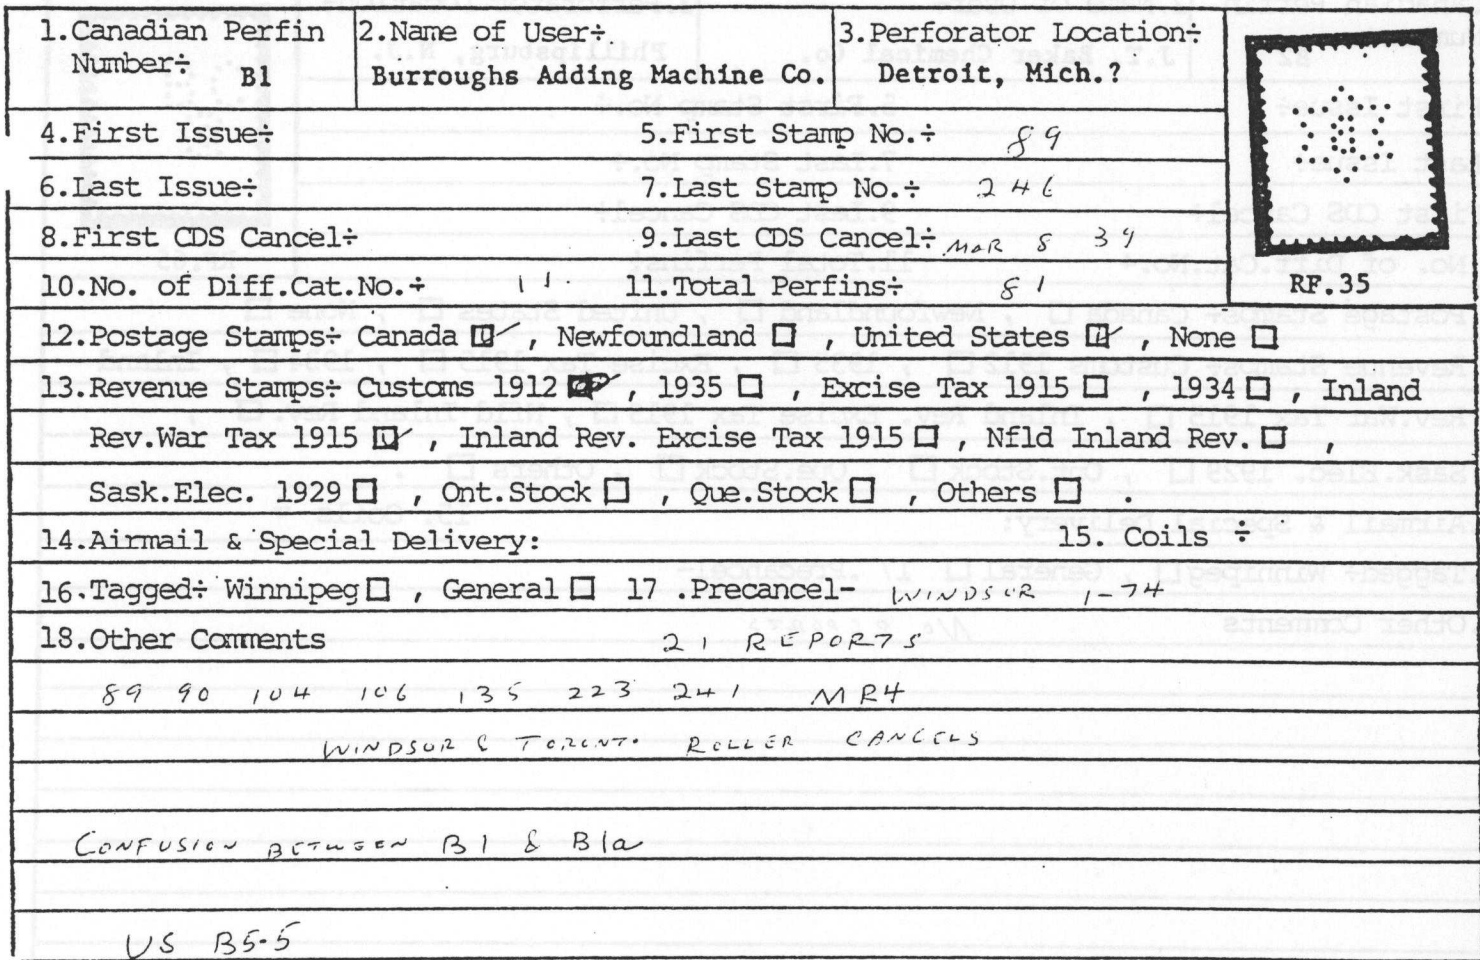 1.Canadian Perfin Number÷ B1
2.Name of User÷ Burroughs Adding Machine Co.
3.Perforator Location÷ Detroit, Mich.?
4.First Issue÷ 5.First Stamp No.÷ 89
6.Last Issue÷ 7.Last Stamp No.÷ 246
8.First CDS Cancel÷ 9.Last CDS Cancel÷ MAR 8 34
10.No. of Diff.Cat.No.÷ 11 11.Total Perfins÷ 81
RF.35
12.Postage Stamps÷ Canada ☑ , Newfoundland ☐ , United States ☑ , None ☐
13.Revenue Stamps÷ Customs 1912 , 1935 ☐ , Excise Tax 1915 ☐ , 1934 ☐ , Inland
Rev.War Tax 1915 ☑ , Inland Rev. Excise Tax 1915 ☐ , Nfld Inland Rev. ☐ ,
Sask.Elec. 1929 ☐ , Ont.Stock ☐ , Que.Stock ☐ , Others ☐ .
14.Airmail & Special Delivery: 15. Coils ÷
16.Tagged÷ Winnipeg ☐ , General ☐ 17 .Precancel- WINDSOR 1-74
18.Other Comments 21 REPORTS
89 90 104 106 135 223 241 MR4
WINDSOR & TORONTO ROLLER CANCELS
CONFUSION BETWEEN B1 & B1a
US B5.5